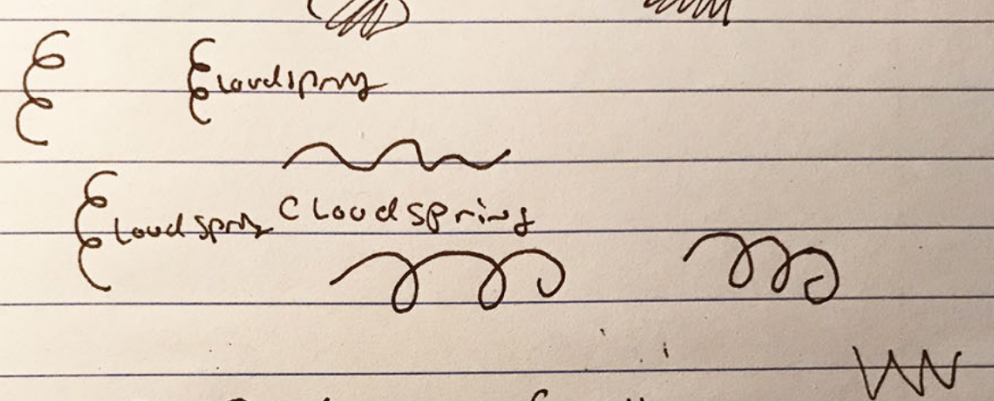 Cloudspring
Cloudspring Cloudspring